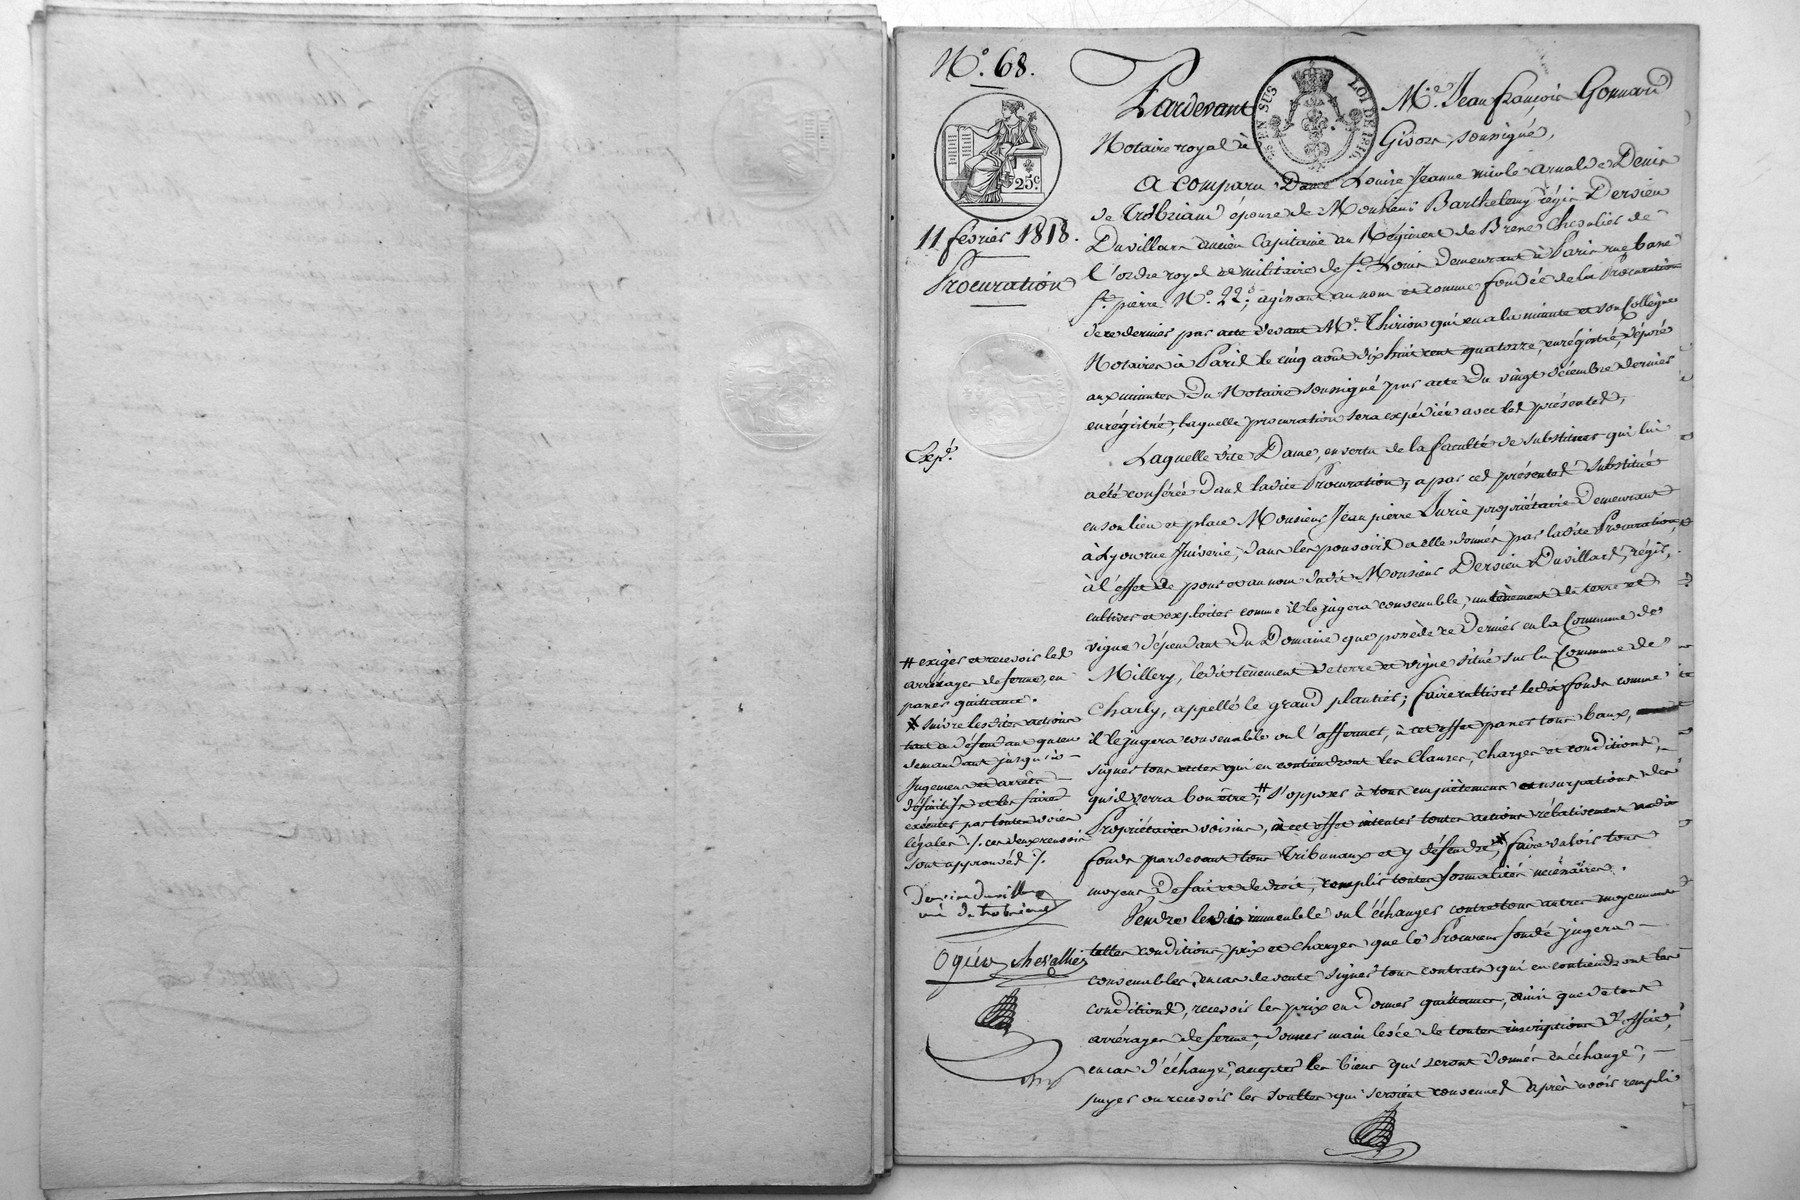 N.° 68.
25.c
11 février 1818.
Procuration
Expé.
EN SUS
LOI DE 1816
Pardevant M.e Jean françois Gonnard
Notaire royal à Givors soussigné,
a comparu Dame Louise Jeanne nicole arnalde Denis
de Trobriand épouse de Monsieur Barthelemy régis Dervieu
Duvillars ancien Capitaine au Régiment de Brene Chevalier de
l'ordre royal et militaire de st. Louis demeurant à Paris rue basse
st. pierre N.° 22, agissant au nom et comme fondée de la Procuration
de ce dernier par acte devant M.e Thirion qui en a la minute et son Collègue
Notaires à Paris le cinq août dix huit cent quatorze, enrégistré, déposé
aux minutes du Notaire soussigné par acte du vingt décembre dernier
enrégistré, laquelle procuration sera expédiée avec les présentes,
Laquelle dite Dame, en vertu de la faculté de substituer qui lui
a été conférée dans ladite Procuration, a par ces présentes substitué
en son lieu et place Monsieur Jean pierre Durie propriétaire demeurant
à Lyon rue Juiverie, dans les pouvoirs a elle donnés par ladite Procuration,
à l'effet de pour et au nom dudit Monsieur Dervieu Duvillars, régir,
cultiver et exploiter comme il le jugera convenable, un tènement de terre et
vigne dépendant du Domaine que possède ce dernier en la Commune de
Millery, ledit tènement de terre et vigne situé sur la Commune de
Charly, appellé le grand plantier; faire cultiver ledit fonds comme
il le jugera convenable ou l'affermer, à cet effet passer tous baux,
signer tous actes qui en contiendront les Clauses, Charges et conditions,
qu'il verra bon être, # s'opposer à tous empiètemens et usurpations des
Propriétaires voisins, à cet effet intenter toutes actions rélativement audit
fonds pardevant tous Tribunaux et y défendre, * faire valoir tous
moyens de fait et de droit, remplir toutes formalités nécessaires.
Vendre ledit immeuble ou l'échanger contre tous autres moyennant
telles conditions, prix et Charges que le Procureur fondé jugera
convenables, en cas de vente signer tous contrats qui en contiendront les
conditions, recevoir les prix en donner quittance, ainsi que de tous
arrérages de ferme, donner main levée de toutes inscriptions d'office,
en cas d'échange, accepter les biens qui seront donnés en échange,
payer ou recevoir les soultes qui seroient convenues après avoir rempli
# exiger et recevoir les
arrérages de ferme, en
passer quittance.
* suivre lesdites actions
tant en défendant qu'en
demandant jusqu'à
Jugement et arrêts
définitifs et les faire
exécuter par toutes voies
légales ./. ces deux renvois
sont approuvés ./.
Dervieu Duvillars
née De trobriand
Ogier Chevallier